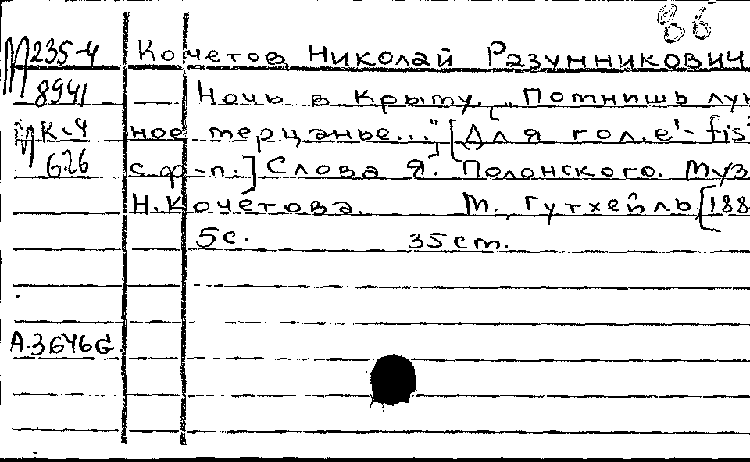 86
М235-4 Кочетов Николай Разумникович
8941 Ночь в Крыму. „Помнишь лун
М К-4 ное мерцанье..." [Для гол. e'-fis'
626 с ф-п.] Слова Я. Полонского. Муз
Н. Кочетова. М., Гутхейль, [188
5с. 35 cm.
А.3646 G.